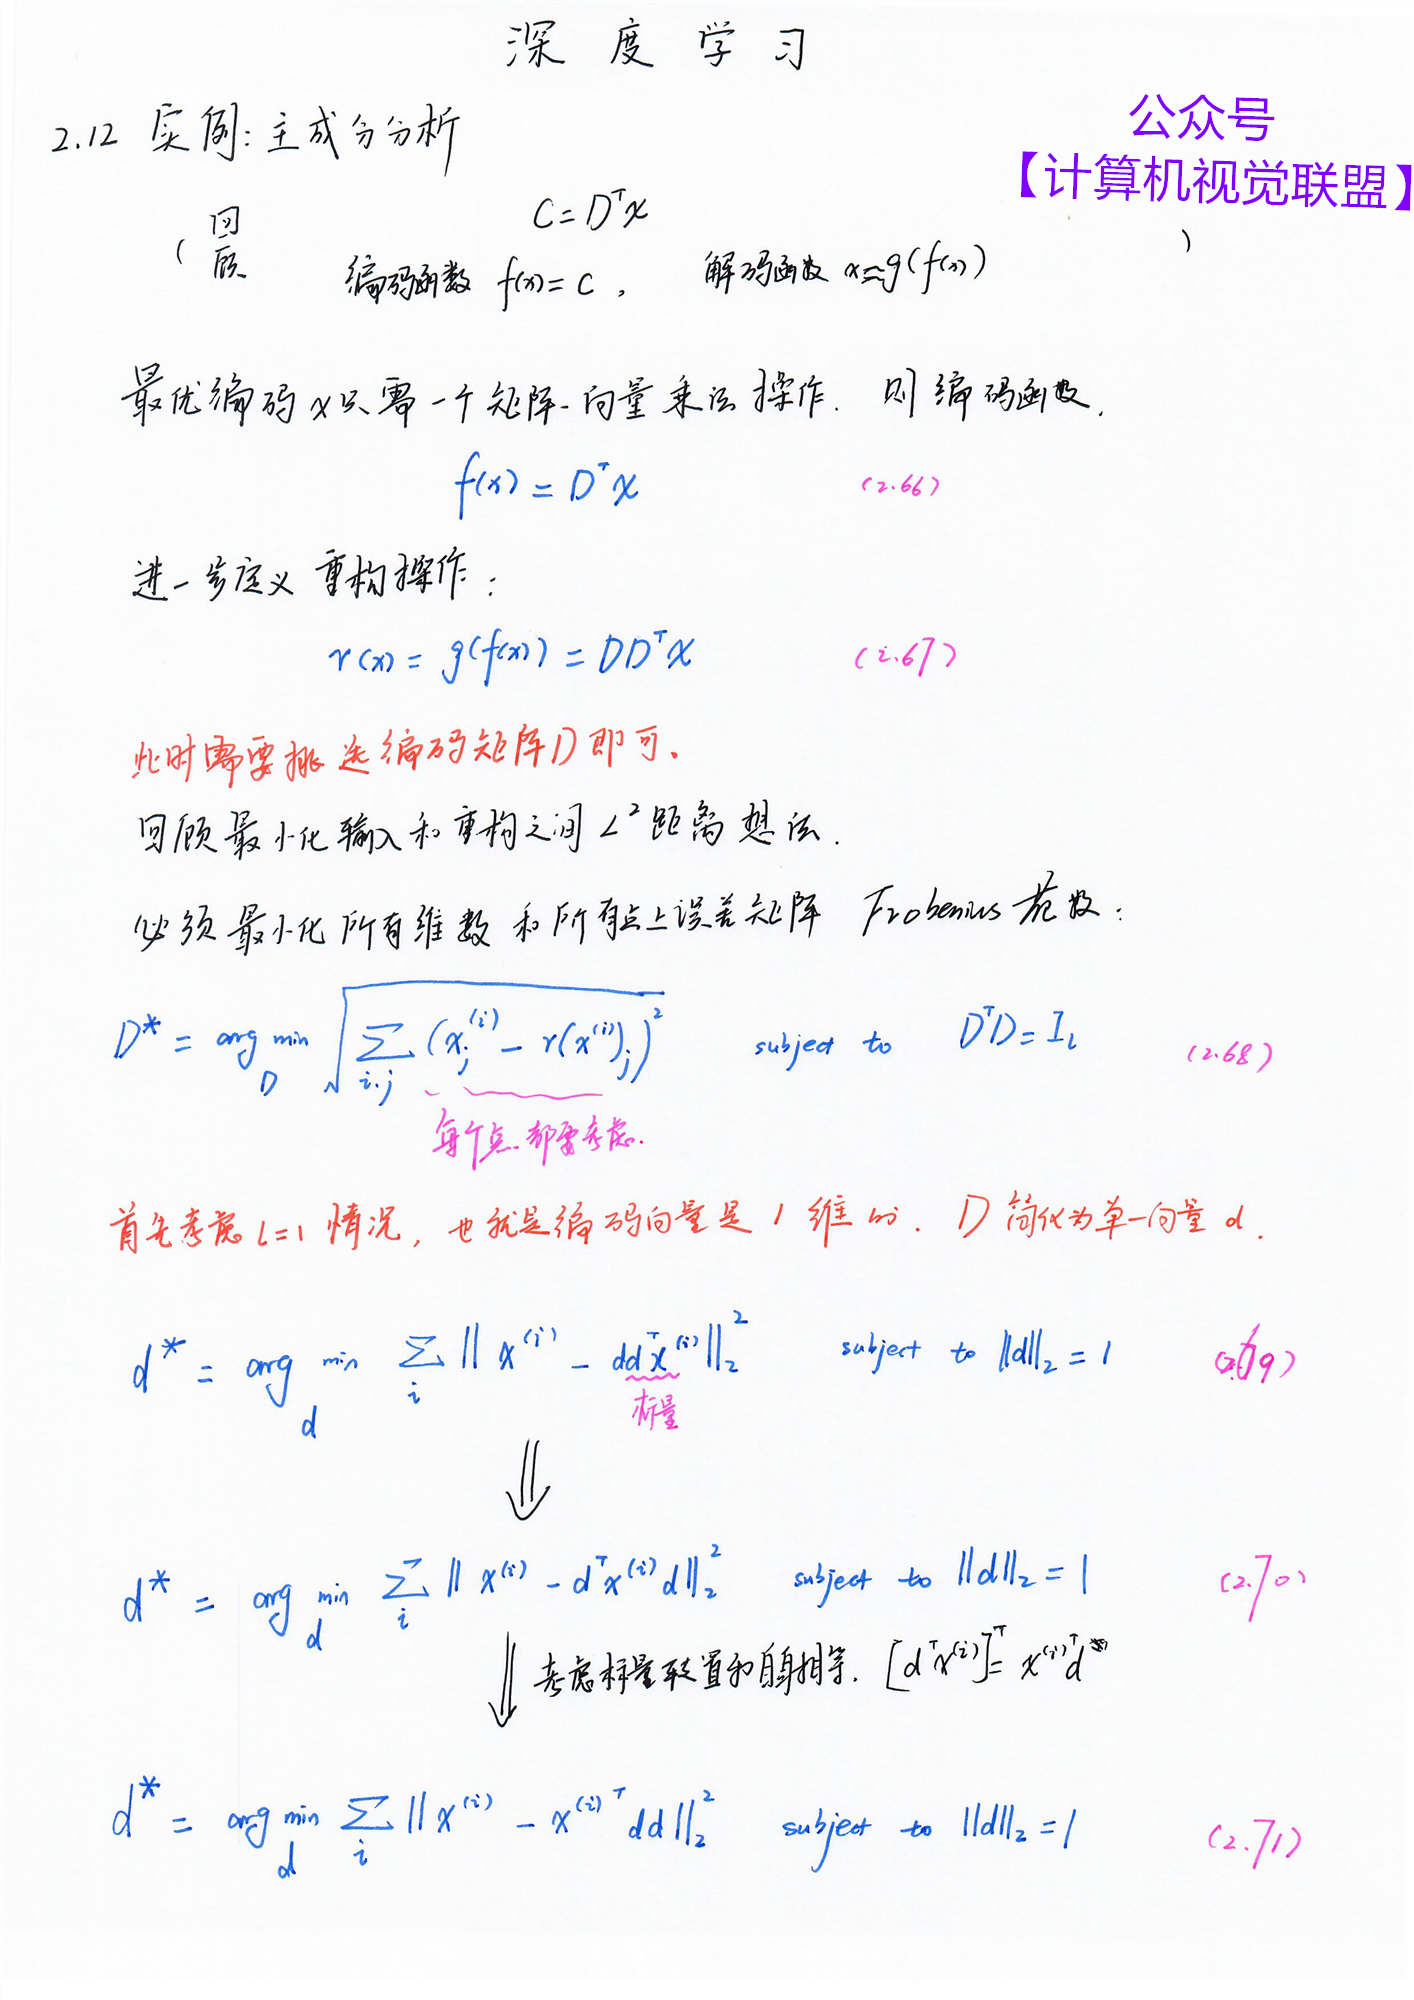 深度学习
公众号
【计算机视觉联盟】
2.12 实例:主成分分析
(回顾 C=DᵀX
编码函数 f(x)=C, 解码函数 x≈g(f(x)) )
最优编码x只需一个矩阵-向量乘法操作. 则编码函数.
f(x)=DᵀX (2.66)
进一步定义重构操作:
r(x)=g(f(x))=DDᵀX (2.67)
此时需要挑选编码矩阵D即可。
回顾最小化输入和重构之间L²距离想法.
必须最小化所有维数和所有点上误差矩阵 Frobenius范数:
D* = arg min_D √(∑_{i,j} (x_j^{(i)} - r(x^{(i)})_j)²) subject to DᵀD=I_l (2.68)
每个点都需考虑.
首先考虑l=1情况, 也就是编码向量是1维的. D简化为单一向量d.
d* = arg min_d ∑_i ||x^{(i)} - ddᵀx^{(i)}||₂² subject to ||d||₂=1 (2.69)
标量
⇓
d* = arg min_d ∑_i ||x^{(i)} - dᵀx^{(i)}d||₂² subject to ||d||₂=1 (2.70)
⇓ 考虑标量转置和自身相等. [dᵀx^{(i)}]ᵀ=x^{(i)ᵀ}d
d* = arg min_d ∑_i ||x^{(i)} - x^{(i)ᵀ}dd||₂² subject to ||d||₂=1 (2.71)